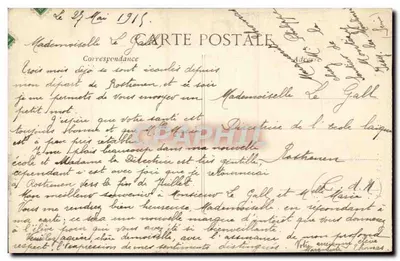 Le 27 Mai 1915
Mademoiselle Le Gall
CARTE POSTALE
Correspondance
Trois mois déjà se sont écoulés depuis
mon départ de Rostrenen et ce soir
je me permets de vous envoyer un
petit mot.
J'espère que votre santé est
toujours bonne et
est à peu près
Mademoiselle Le Gall
Directrice de l'école laïque
Rostrenen
C. d. N.
Je me plais beaucoup dans ma nouvelle
école et Madame la Directrice est très gentille,
cependant c'est avec joie que je
à Rostrenen vers la fin de Juillet.
Mon meilleur souvenir à Monsieur Le Gall et Melle Maria.
Vous me rendrez bien heureuse, Mademoiselle en répondant à
ma carte; ce sera une nouvelle marque d'intérêt que vous donnerez
à l'élève pour qui vous avez été si bienveillante.
Veuillez agréer, chère demoiselle, avec l'assurance de mon profond
respect, l'expression de mes sentiments distingués
Votre ancienne élève
Thomas